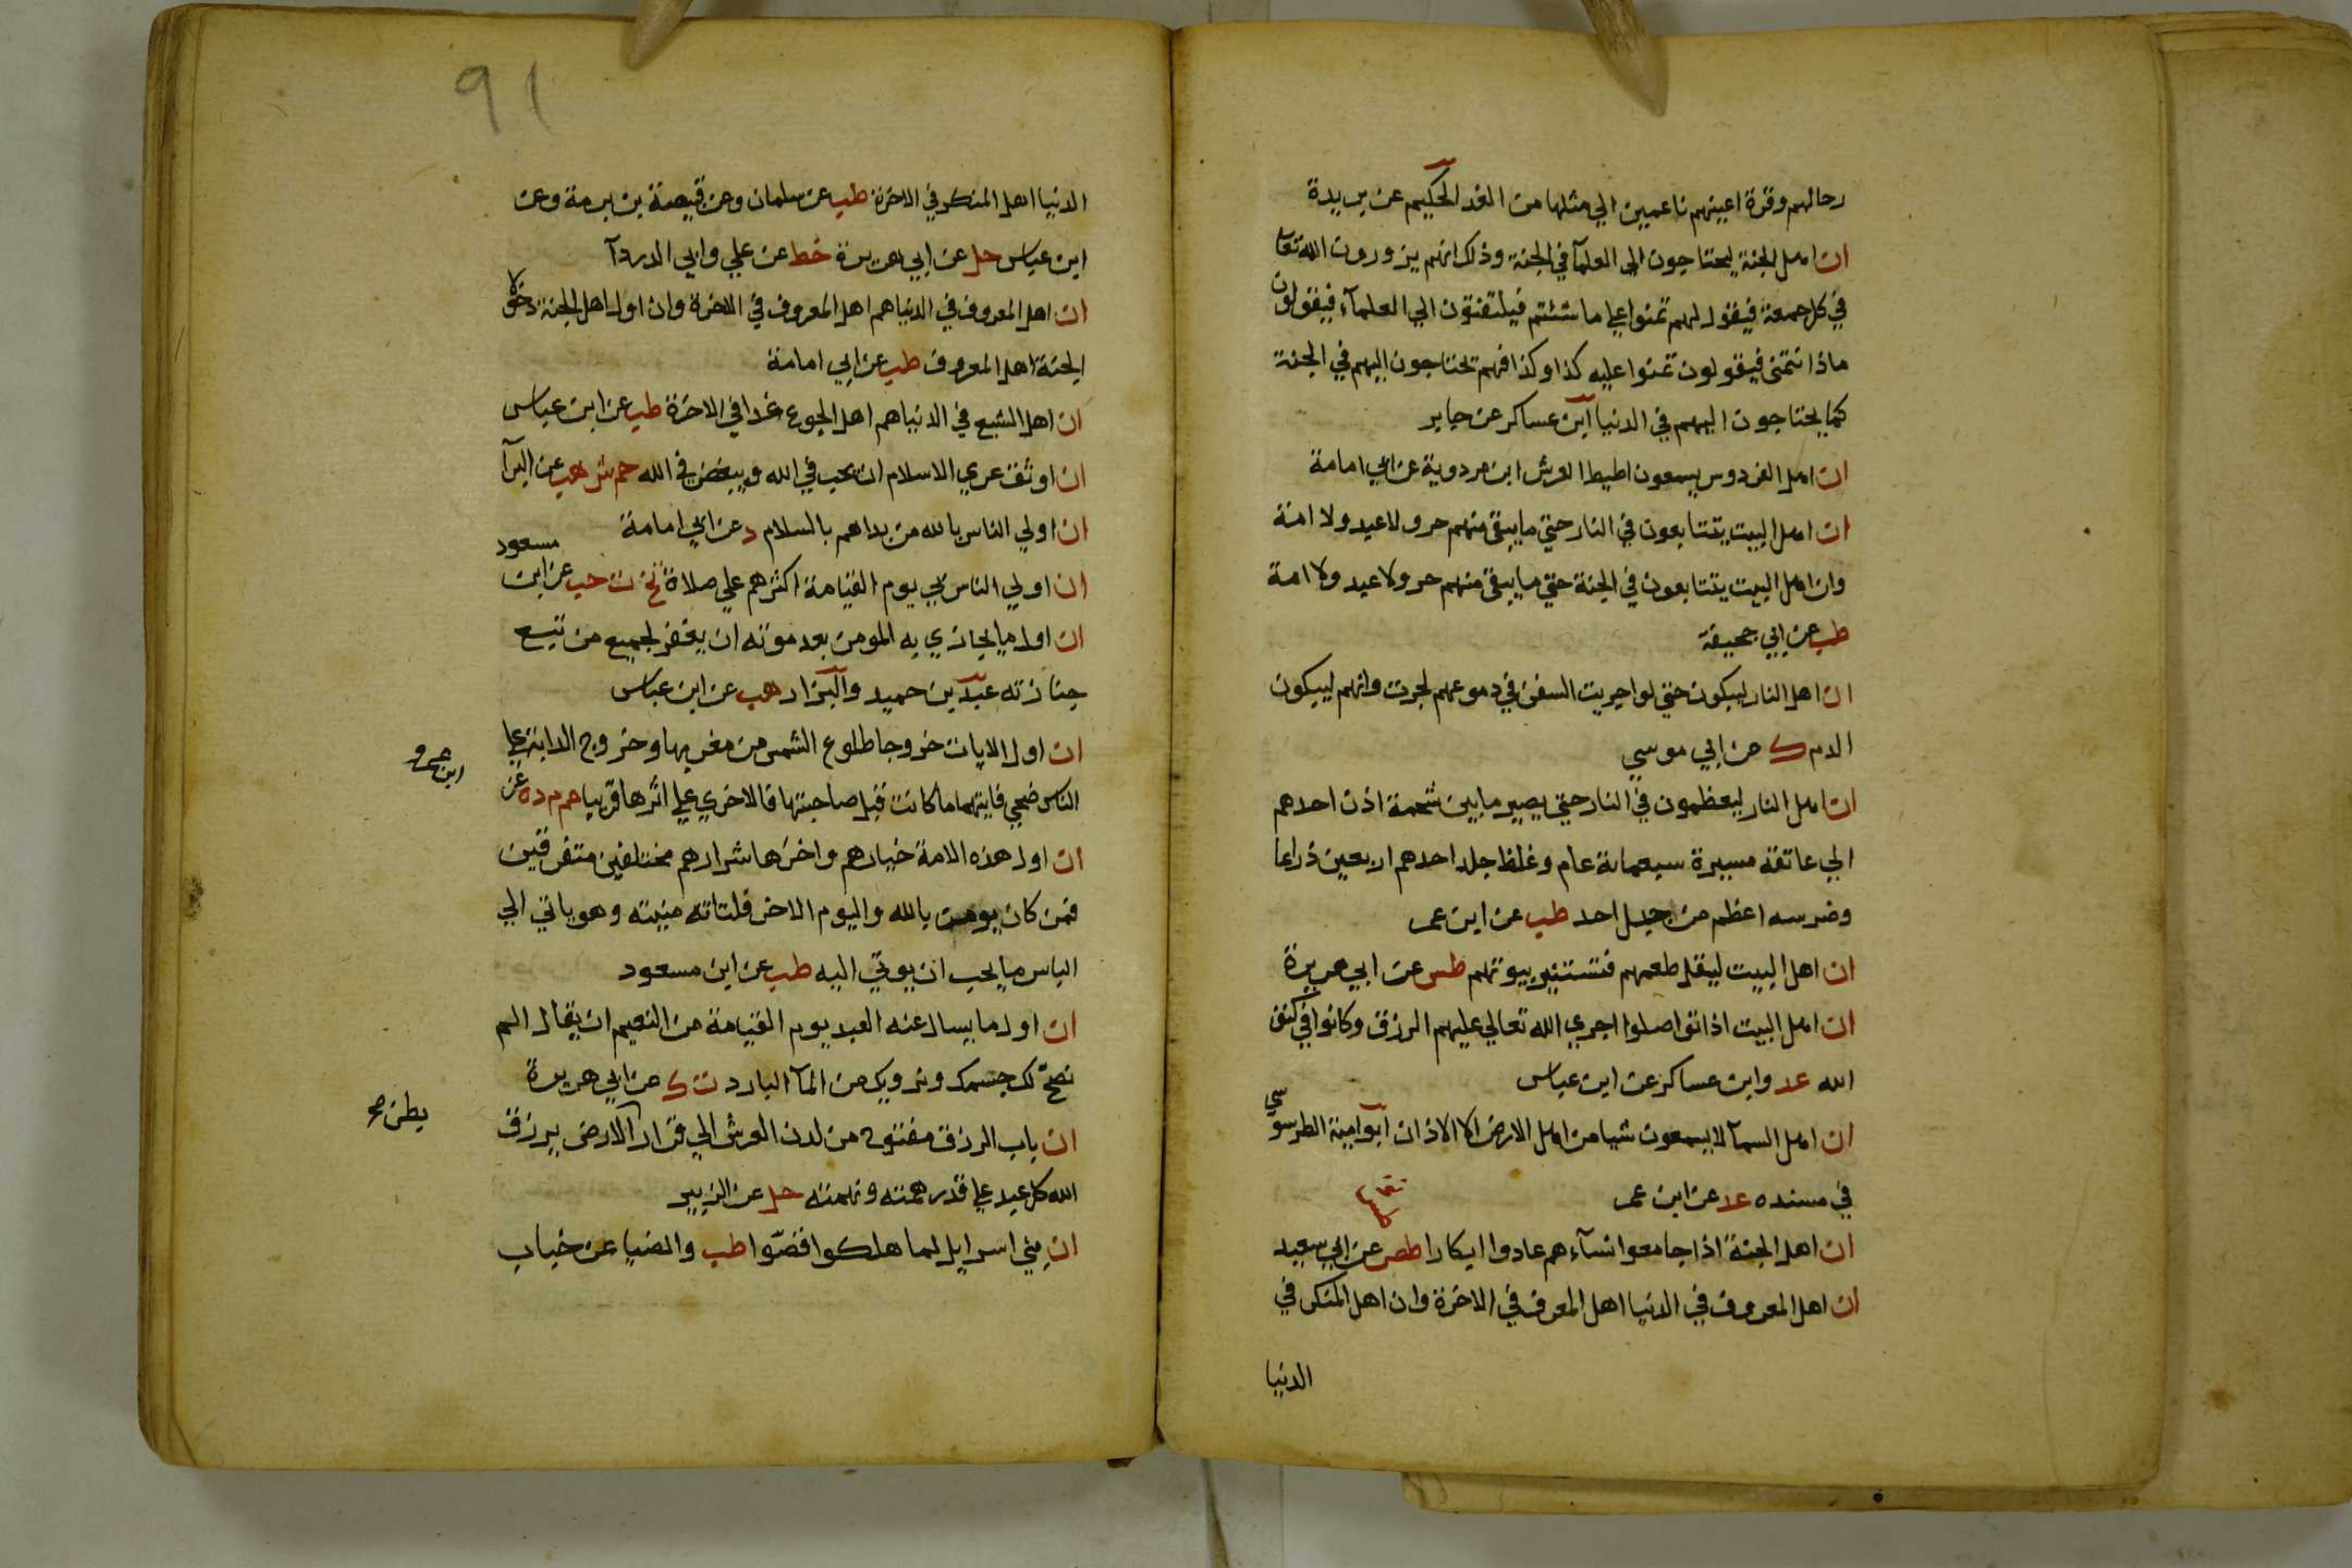 رحالهم وقرة اعينهم ناعمين الي مثلها من الغد الحكيم عن بريدة
ان اهل الجنة ليحتاجون الي العلمآ في الجنة وذلك انهم يزورون الله تعا
في كل جمعة فيقول لهم تمنوا علي ما شئتم فيلتفتون الي العلمآء فيقولون
ماذا نتمنى فيقولون تمنوا عليه كذا وكذا فهم تحتاجون اليهم في الجنة
كما يحتاجون اليهم في الدنيا ابن عساكر عن جابر
ان اهل الفردوس يسمعون اطيط العرش ابن مردوية عن ابي امامة
ان اهل البيت يتتابعون في النار حتي ما يبقى منهم حر ولا عبد ولا امة
وان اهل البيت يتتابعون في الجنة حتي ما يبقى منهم حر ولا عبد ولا امة
طب عن ابي جحيفة
ان اهل النار ليبكون حتي لو اجريت السفن في دموعهم لجرت وانهم ليبكون
الدم ك عن ابي موسي
ان اهل النار ليعظمون في النار حتي يصير ما بين شحمة اذن احدهم
الي عاتقه مسيرة سبعمائة عام وغلظ جلد احدهم اربعين ذراعا
وضرسه اعظم من جبل احد طب عن ابن عمر
ان اهل البيت ليقل طعمهم فتستنير بيوتهم طس عن ابي هريرة
ان اهل البيت اذا تواصلوا اجري الله تعالي عليهم الرزق وكانوا في كنف
الله عد وابن عساكر عن ابن عباس
ان اهل السمآ لا يسمعون شيا من اهل الارض الا الاذان ابو امية الطرسوسي
في مسنده عد عن ابن عمر
ان اهل الجنة اذا جامعوا نسآءهم عادوا ابكارا طص عن ابي سعيد
ان اهل المعروف في الدنيا اهل المعرف في الاخرة وان اهل المنكر في
الدنيا
91
الدنيا اهل المنكر في الاخرة طب عن سلمان وعن قبيصة بن برمة وعن
ابن عباس حل عن ابي هريرة خط عن علي وابي الدردآ
ان اهل المعروف في الدنيا هم اهل المعروف في الاخرة وان اول اهل الجنة دخولا
الجنة اهل المعروف طب عن ابي امامة
ان اهل الشبع في الدنيا هم اهل الجوع غدا في الاخرة طب عن ابن عباس
ان اوثق عري الاسلام ان تحب في الله وتبغض في الله حم ش هب عن البرآ
ان اولي الناس بالله من بداهم بالسلام د عن ابي امامة
ان اولي الناس بي يوم القيامة اكثرهم علي صلاة تخ ت حب عن ابن مسعود
ان اول ما يجازي به المومن بعد موته ان يغفر لجميع من تبع
جنازته عبد بن حميد والبزار هب عن ابن عباس
ان اول الايات خروجا طلوع الشمس من مغربها وخروج الدابة علي
الناس ضحي فايتهما ما كانت قبل صاحبتها فالاخري علي اثرها قريبا حم م د ه عن
ابن عمرو
ان اول هذه الامة خيارهم واخرها شرارهم مختلفين متفرقين
فمن كان يومن بالله واليوم الاخر فلتاته منيته وهو ياتي الي
الناس ما يحب ان يوتي اليه طب عن ابن مسعود
ان اول ما يسال عنه العبد يوم القيامة من النعيم ان يقال الم
نصحّ لك جسمك ونرويك من المآ البارد ت ك عن ابي هريرة
ان باب الرزق مفتوح من لدن العرش الي قرار الارض يرزق
بطن صح
الله كل عبد علي قدر همته ونهمته حل عن الزبير
ان بني اسرايل لما هلكوا قصّوا طب والضيا عن خباب